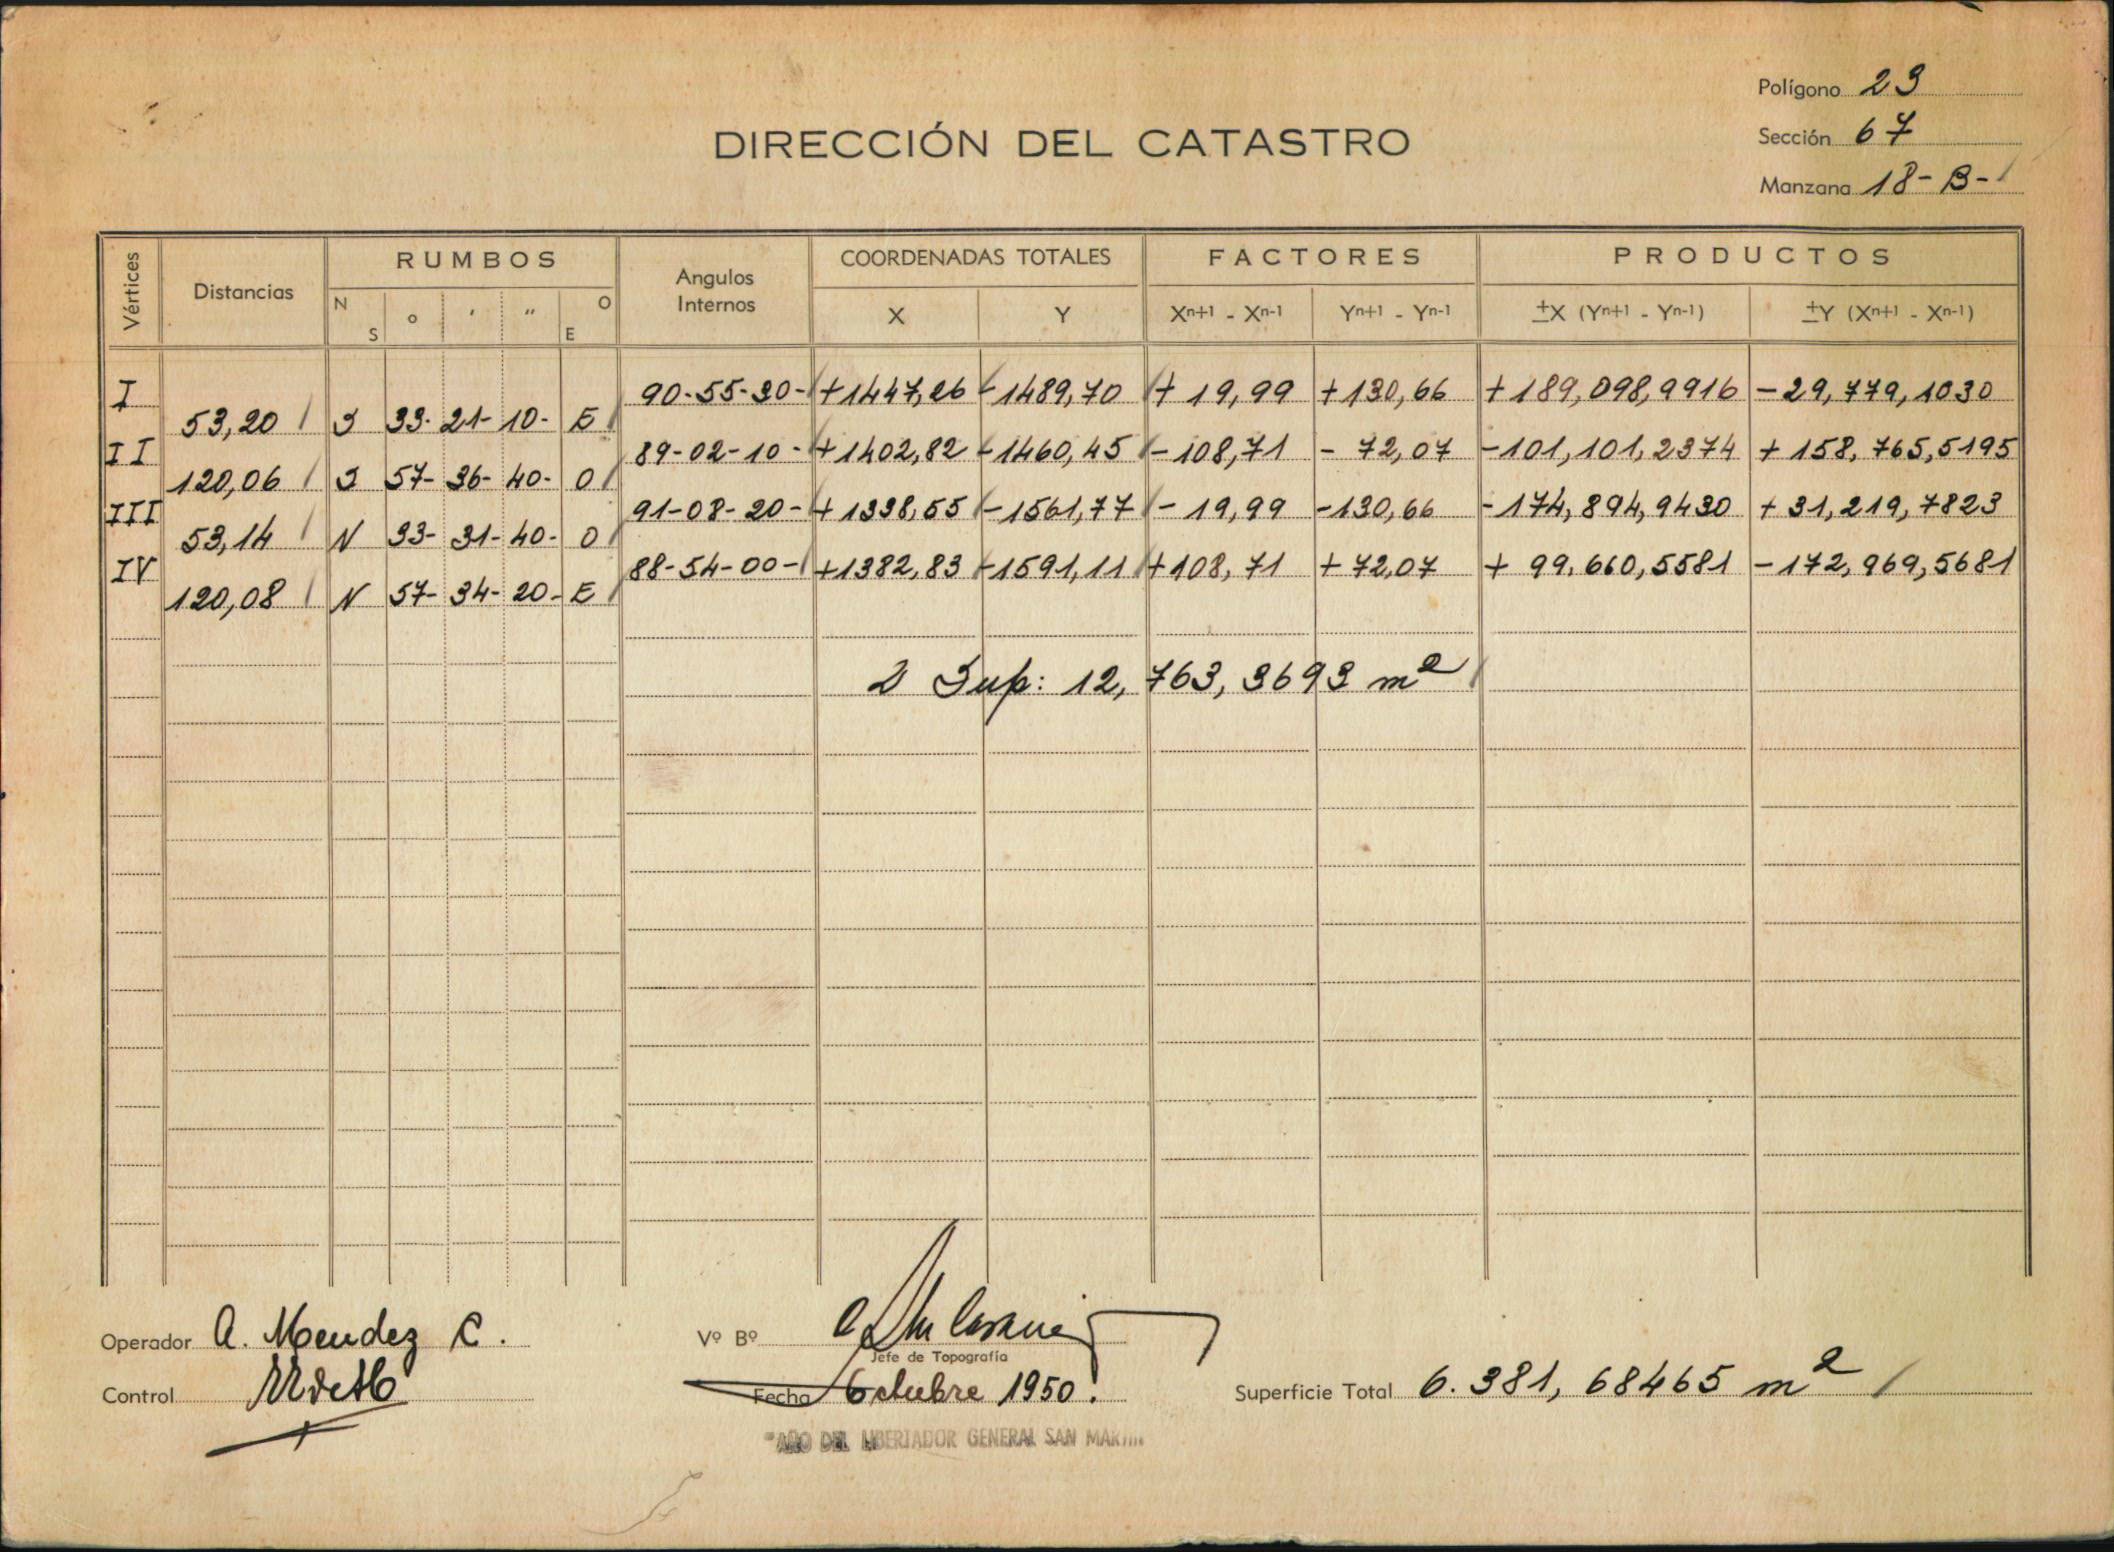 Polígono 23
Sección 67
Manzana 18-B-
DIRECCIÓN DEL CATASTRO
Vértices Distancias RUMBOS Angulos Internos COORDENADAS TOTALES FACTORES PRODUCTOS
N S ° ' " O E X Y Xn+1 - Xn-1 Yn+1 - Yn-1 ±X (Yn+1 - Yn-1) ±Y (Xn+1 - Xn-1)
I 90-55-30- +1447,26 -1489,70 + 19,99 +130,66 +189,098,9916 -29,779,1030
53,20 S 33-21-10- E
II 89-02-10- +1402,82 -1460,45 -108,71 - 72,07 -101,101,2374 +158,765,5195
120,06 S 57-36-40- O
III 91-08-20- +1338,55 -1561,77 - 19,99 -130,66 -174,894,9430 +31,219,7823
53,14 N 33-31-40- O
IV 88-54-00- +1382,83 -1591,11 +108,71 +72,07 + 99,660,5581 -172,969,5681
120,08 N 57-34-20- E
2 Sup: 12,763,3693 m²
Operador A. Mendez C.
Vº Bº
Jefe de Topografía
Control
Fecha Octubre 1950.
Superficie Total 6.381,68465 m²
"AÑO DEL LIBERTADOR GENERAL SAN MARTIN